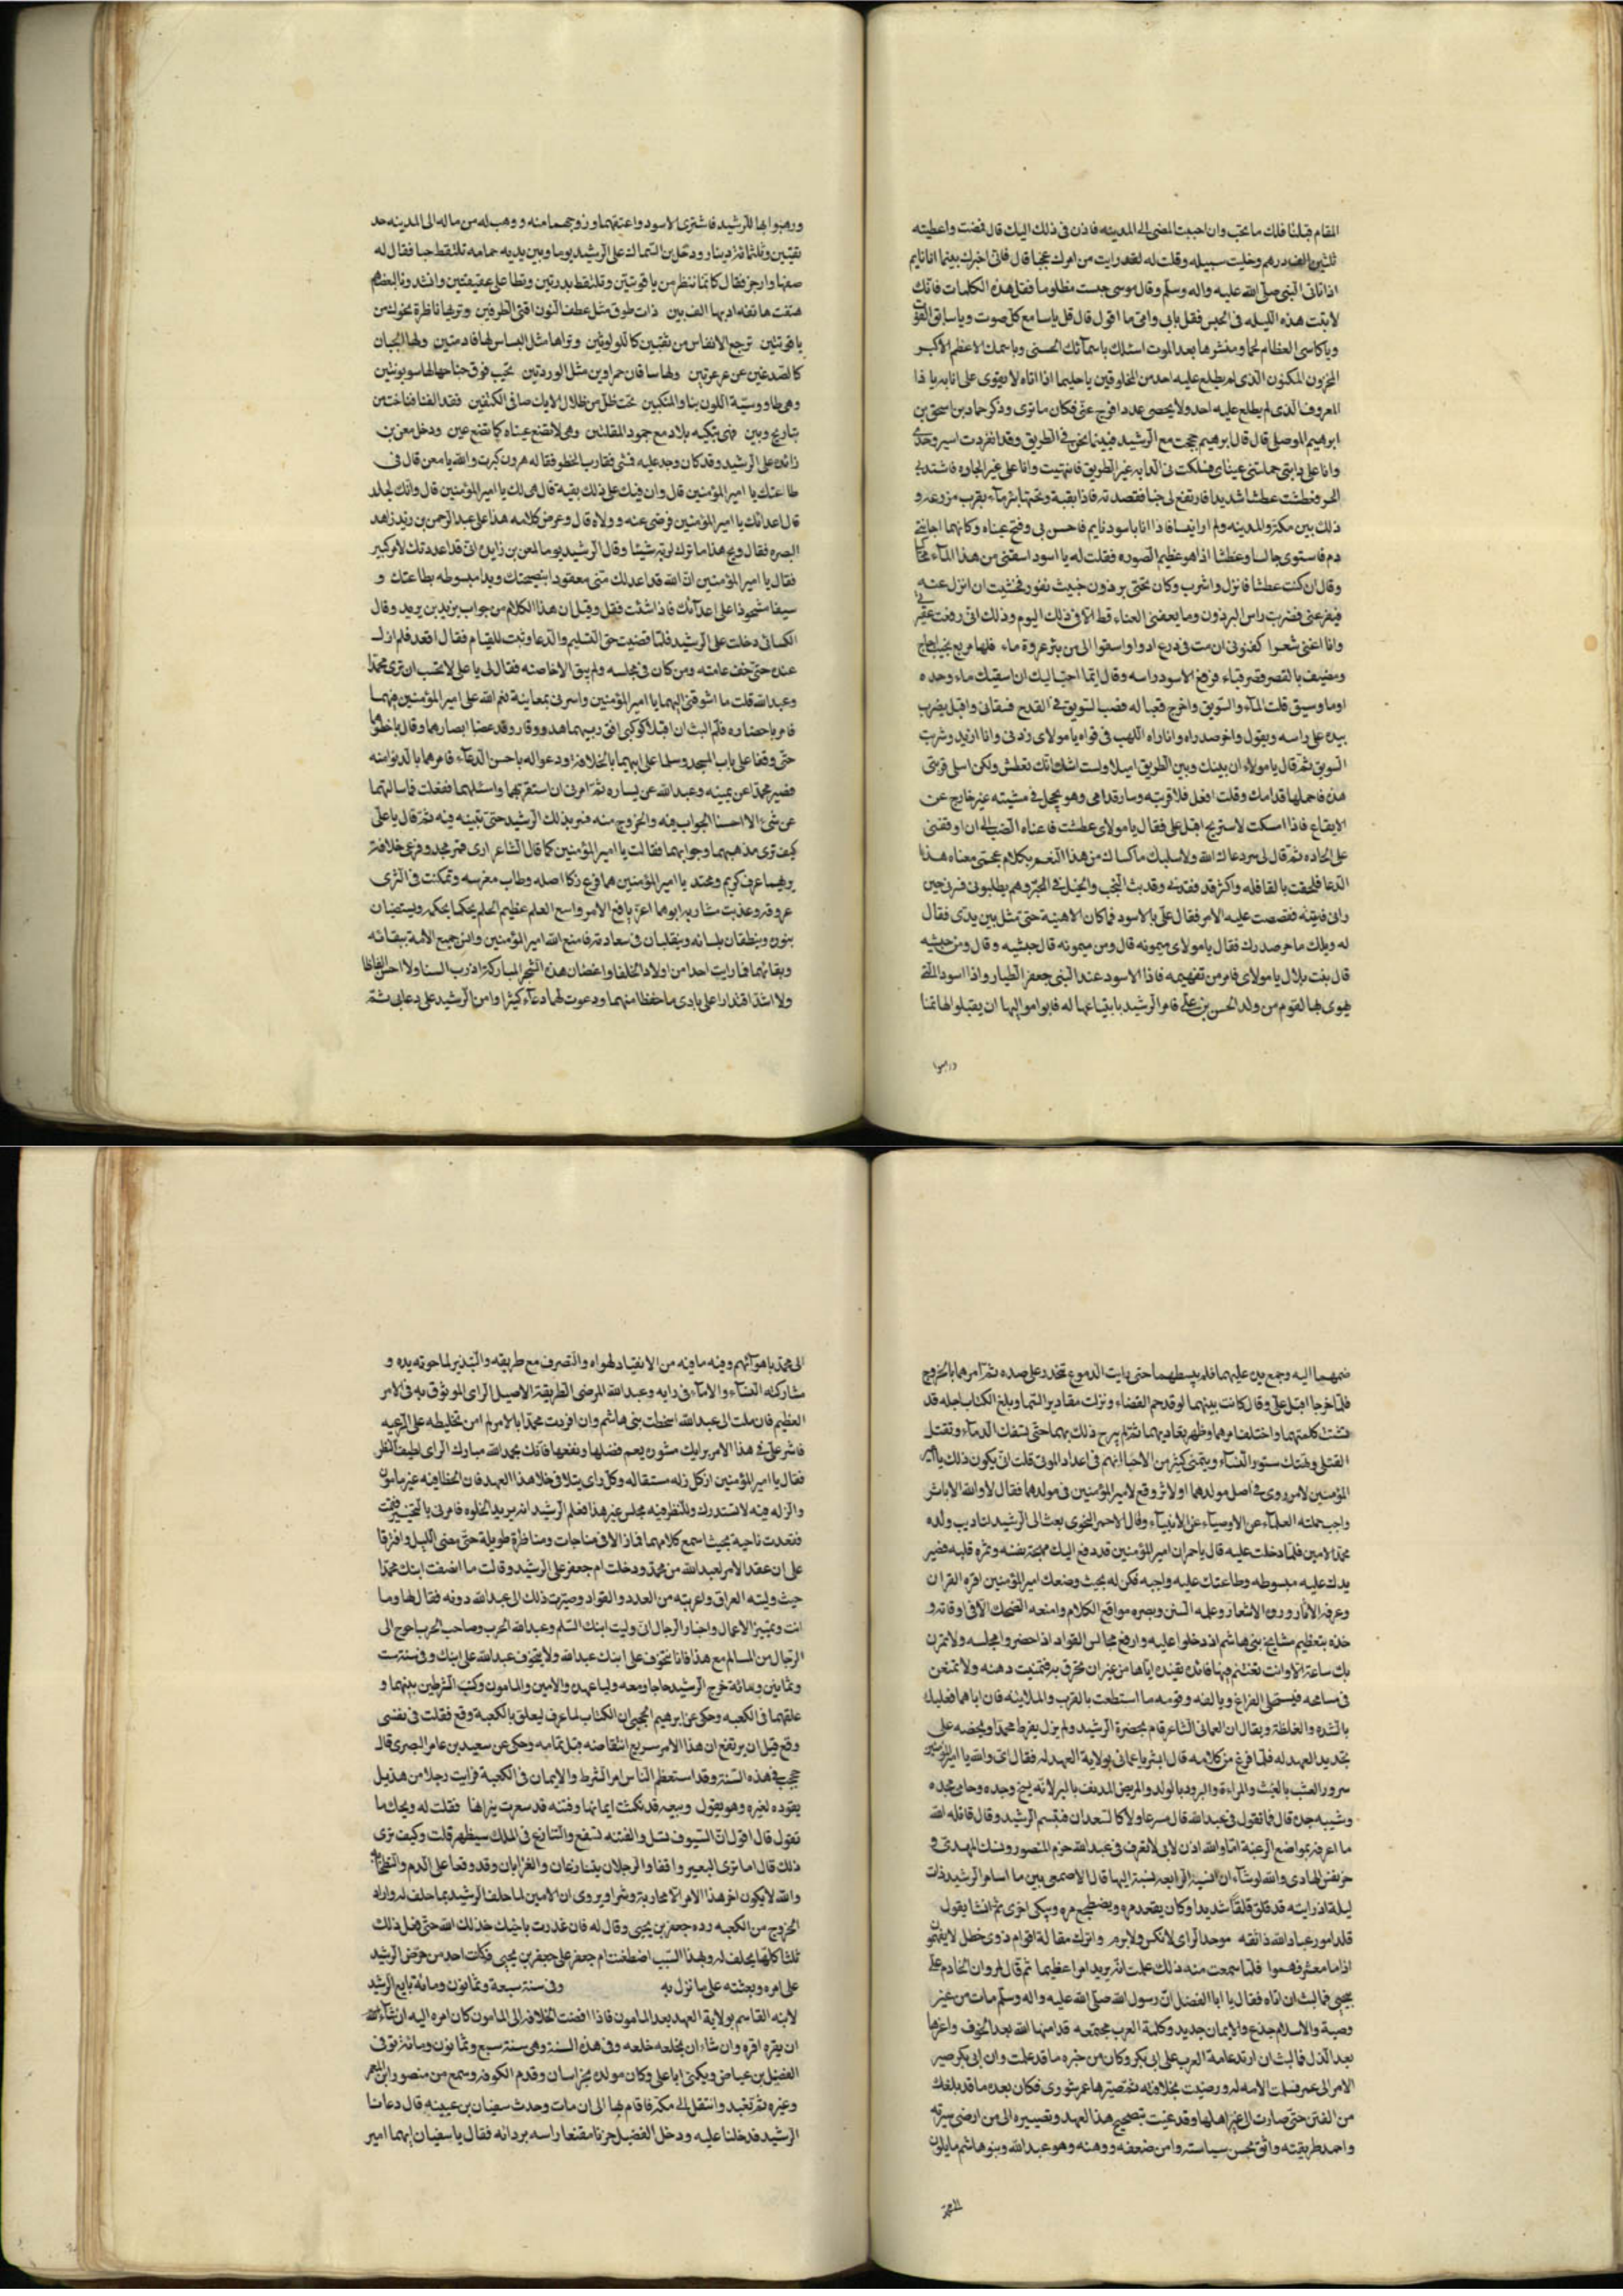 المقام قبلنا فلك ما تحب وان احببت المضى الى المدينه فاذن فى ذلك اليك قال فمضت واعطيته
ثلثين الف درهم وخليت سبيله وقلت له لقد رايت من امرك عجبا قال فانى اخبرك بينما انا نايم
اذ اتانى النبى صلى الله عليه واله وسلم وقال موسى حبست مظلوما فقل هذه الكلمات فانك
لا تبت هذه الليله فى الحبس فقل بابى وامى ما اقول قال قل يا سامع كل صوت ويا سابق الفوت
ويا كاسى العظام لحما ومنشرها بعد الموت اسئلك باسمائك الحسنى وباسمك الاعظم الاكبر
المخزون المكنون الذى لم يطلع عليه احد من المخلوقين يا حليما اذا اناه لا يقوى على انابه يا ذا
المعروف الذى لم يطلع عليه احد ولا يحصى عددا فرج عنى فكان ما ترى وذكر حماد بن اسحق بن
ابرهيم الموصلى قال قال ابرهيم حججت مع الرشيد فبينما نحن فى الطريق وقد انفردت اسير وحدى
وانا على دابتى حملتنى عيناى فسلكت بى الدابه غير الطريق فانتهيت وانا على غير الجاده فاشتد بى
الحر وعطشت عطشا شديدا فارتفع لى خبا فقصدته فاذا بقبة وبجنبها بئر ماء بقرب مزرعه و
ذلك بين مكة والمدينه ولم ار انيسا فاذا انا باسود نايم فاحس بى وفتح عيناه وكانهما اجانتى
دم فاستوى جالسا وعطشا اذا هو عظيم الصوره فقلت له يا اسود اسقنى من هذا الماء
وقال ان كنت عطشا فانزل واشرب وكان تحتى برذون خبيث نفور فخشيت ان انزل عنه
فيفر عنى فضربت راس البرذون وما ينفعنى الغناء قط الا فى ذلك اليوم وذلك انى رفعت عقيرتى
وانا اغنى شعرا كفنونى ان مت فى درع اروى واسقوا الى من بئر عروة ماء فلها مربع بجنب اجاج
ومصيف بالقصر قصر قباء فرفع الاسود راسه وقال ايما احب اليك ان اسقيك ماء وحده
او ماء وسويق قلت الماء والسويق واخرج قعبا له فصب السويق فى القدح فسقانى واقبل يضرب
بيده على راسه ويقول واحر صدراه وانا راه اللهب فى فواه يا مولاى زدنى وانا ازيد وشربت
السويق ثم قال يا مولاه ان بينك وبين الطريق اميلا ولست اشك انك تعطش ولكن املى قربتى
هذه فاحملها قدامك وقلت افعل فملا قربته وسار قدامى وهو يحجل فى مشيته غير خارج عن
الايقاع فاذا امسكت لاستريح اقبل على فقال يا مولاى عطشت فاعناه الصب الى ان اوقفنى
على الجاده ثم قال لى سر رعاك الله ولا سلبك ما كساك من هذا النعم بكلام عجمى معناه هذا
الدعا فلحقت بالقافله واكثر قد فقدنى وقد بث النجب والخيل فى البر وهم يطلبونى فسر بى حين
رانى فاتيته فقصصت عليه الامر فقال على بالاسود فما كان الا هنية حتى تمثل بين يدى فقال
له ويلك ما حر صدرك فقال يا مولاى ميمونه قال ومن ميمونه قال حبشيه وقال ومن حبشيه
قال بنت بلال يا مولاى فامر من تفهيمه فاذا الاسود عند النبى جعفر الطيار واذا السودا التى
يهوى بها لقوم من ولد الحسن بن على فامر الرشيد بابتياعها له فابوا مواليها ان يقبلوا لها ثمنا
وهبوا
ووهبوا بها للرشيد فاشترى الاسود واعتقهما وزوجهما منه ووهب له من ماله الى المدينه حد
يقتين وثلثمائة دينار ودخل ابن السماك على الرشيد يوما وبين يديه حمامه تلتقط حبا فقال له
صفها واوجز فقال كانما تنظر من ياقوتتين وتلتقط بدرتين وتطا على عقيقتين وانشدونا لبعضهم
هتفت هاتفه اذنها الف ببين ذات طوق مثل عطف النون اقنى الطرفين وتربها ناظرة نحوك من
ياقوتتين ترجع الانفاس من ثقبين كاللولوتين وتراها مثل البساس لها قادمتين ولها لحيان
كالصدغين عن عرعرتين ولها ساقان حمراوين مثل الوردتين تحتها فوق جناحها لها سوبونتين
وهى طاووسيّة اللون بنا والمنكبين تحت ظل من ظلال الايك صافى الكتفين فقد الفنا فناخت من
تباريح وبين فهى تبكيه بلا دمع جمود المقلتين وهى لا تصنع عيناه كما تصنع عين ودخل معن بن
زائده على الرشيد وقد كان وجد عليه فمشى فقارب الخطو فقال له هرون كبرت والله يا معن قال فى
طاعتك يا امير المؤمنين قال وان فيك على ذلك بقية قال هى لك يا امير المؤمنين قال وانك لجلد
قال اعدائك يا امير المؤمنين فرضى عنه وولاه قال وعرض كلامه هذا على عبد الرحمن بن زيد زاهد
البصره فقال ويح هذا ما ترك لربه شيئا وقال الرشيد يوما لمعن بن زايده انى قد اعددتك لامر كبير
فقال يا امير المؤمنين ان الله قد اعد لك منى معقودا بنصيحتك ويدا مبسوطه بطاعتك و
سيفا مشحوذا على اعدائك فاذا شئت فقل وقيل ان هذا الكلام من جواب يزيد بن مزيد وقال
الكسائى دخلت على الرشيد فلما قضيت حق التسليم والدعا وثبت للقيام فقال اقعد فلم ازل
عنده حتى خف عامته ومن كان فى مجلسه ولم يبق الا خاصته فقال لى يا على الا تحب ان ترى محمدا
وعبد الله قلت ما اشوقنى اليهما يا امير المؤمنين واسرنى بمعاينة نعم الله على امير المؤمنين فيهما
فامر باحضاره فلم البث ان اقبلا ككوكبى افق ربهما هدو ووقار وقد غضا ابصارهما وقاربا خطوهما
حتى وقفا على باب المجلس وسلما على ابيهما بالخلافة ودعوا له باحسن الدعاء فامرهما بالدنو منه
فصير محمدا عن يمينه وعبد الله عن يساره ثم امرنى ان استقريهما واسئلهما ففعلت فما سالتهما
عن شئ الا احسنا الجواب فيه والخروج منه فسر بذلك الرشيد حتى تبينه فيه ثم قال يا على
كيف ترى مذهبهما وجوابهما فقالت يا امير المؤمنين كما قال الشاعر ارى قمرى مجد وفرعى خلافة
يزينهما عرف كريم ومحتد يا امير المؤمنين هما فرع زكا اصله وطاب مغرسه وتمكنت فى الثرى
عروقه وعذبت مشاربه ابوهما اعز نافذ الامر واسع العلم عظيم الحلم يحكما بحكمه ويستضيان
بنوره وينطقان بلسانه ويتقلبان فى سعادته فامتع الله امير المؤمنين وانس جميع الامة ببقائه
وبقائهما فما رايت احدا من اولاد الخلفا واغصان هذه الشجرة المباركة اذرب السنا ولا احسن الفاظا
ولا اشد اقتدارا على تادى ما حفظا منهما ودعوت لهما دعاء كثيرا وامن الرشيد على دعايى ثم
ضمهما اليه وجمع يديه عليهما فلم يبسطهما حتى رايت الدموع تتحدر على صدره ثم امرهما بالخروج
فلما خرجا اقبل على وقال كانت بينهما لو قد حم القضاء ونزلت مقادير السما وبلغ الكتاب اجله قد
تشتت كلمتهما واختلف امرهما وظهر تعاديهما ثم لم يبرح ذلك بهما حتى تسفك الدماء وتقتل
القتلى وتهتك ستور النساء ويتمنى كثير من الاحيا انهم فى اعداد الموتى قلت انى يكون ذلك يا امير
المؤمنين لامر روى فى اصل مولدهما او لاثر وقع لامير المؤمنين فى مولدهما فقال لا والله الا باثر
واجب حملته العلماء عن الاوصياء عن الانبياء وقال الاحمر النحوى بعث الى الرشيد لتاديب ولده
محمد الامين فلما دخلت عليه قال يا احمر ان امير المؤمنين قد دفع اليك مهجة نفسه وثمره قلبه فصير
يدك عليه مبسوطه وطاعتك عليه واجبه فكن له بحيث وضعك امير المؤمنين اقره القران
وعرفه الاثار وروه الاشعار وعلمه السنن وبصره مواقع الكلام وامنعه الضحك الا فى اوقاته و
خذه بتعظيم مشايخ بنى هاشم اذ دخلوا عليه وارفع مجالس القواد اذا حضروا مجلسه ولا تمرن
بك ساعة الا وانت تغتنم فيها فائدة تفيده اياها من غير ان تخرق به فتميت ذهنه ولا تمنعن
فى مسامحه فيستحلى الفراغ ويالفه وقومه ما استطعت بالقرب والملاينه فان اباهما فعليك
بالشده والغلظة ويقال ان العمانى الشاعر قام بحضرة الرشيد ولم يزل يقرظ محمدا ويحضه على
تجديد العهد له فلما فرغ من كلامه قال ابشر يا عمانى بولاية العهد له فقال اى والله يا امير المؤمنين
سرور العشب بالغيث والمراءة والبرود بالولد والمريض المدنف بالبر لانه نسيج وحده وحامى مجده
وشبيه جده قال فما تقول فى عبد الله قال مرعا ولا كالسعدان فتبسم الرشيد وقال قاتله الله
ما اعرفه بمواضع الرغبة اما والله اذن لابى لاتعرف فى عبد الله حزم المنصور ونسك المهدى و
عز نفس الهادى والله لو شاء ان انسبه الى الرابعه لنسبته اليها قال الاصمعى بين ما اسامر الرشيد ذات
ليلة اذ رايته قد قلق قلقا شديدا وكان يقعد مره ويضطجع مره ويبكى اخرى ثم انشا يقول
قلد امور عباد الله ذا ثقه موحد الراى لا نكس ولا برم واترك مقالة اقوام ذوى خطل لا يفهمون
اذا ما معشر فهموا فلما سمعت منه ذلك علمت انه يريد امرا عظيما ثم قال لمروان الخادم على
بيحيى فما لبث ان اتاه فقال يا ابا الفضل ان رسول الله صلى الله عليه واله وسلم مات من غير
وصية والاسلام جذع والايمان جديد وكلمة العرب مجتمعه قد امنها الله بعد الخوف واعزها
بعد الذل فما لبث ان ارتد عامة العرب على ابى بكر وكان من خبره ما قد علمت وان ابى بكر صير
الامر الى عمر فسلمت الامه له ورضيت بخلافته ثم تصيرها عمر شورى فكان بعده ما قد بلغك
من الفتن حتى صارت الى غير اهلها وقد عنيت تصحيح هذا العهد وتصييره الى من ارضى سيرته
واحمد طريقته واثق بحسن سياسته وامن ضعفه ووهنه وهو عبد الله وبنو هاشم مايلون
الى محمد
الى محمد باهوائهم وفيه ما فيه من الانقياد لهواه والتصرف مع طريقه والتبذير لما حوته يده و
مشاركة النساء والاماء فى رايه وعبد الله المرضى الطريقة الاصيل الراى الموثوق به فى الامر
العظيم فان ملت الى عبد الله اسخطت بنى هاشم وان افردت محمدا بالامر لم امن تخليطه على الرعيه
فاشر على فى هذا الامر برايك مشورة يعم فضلها ونفعها فانك بحمد الله مبارك الراى لطيف النظر
فقال يا امير المؤمنين ان كل زله مستقاله وكل راى يتلافى خلا هذا العهد فان الخطا فيه غير مامون
والزله فيه لا تستدرك وللنظر فيه مجلس غير هذا فعلم الرشيد انه يريد الخلوه فامرنى بالتنحى فقمت
فقعدت ناحية بحيث اسمع كلامهما فما زالا فى مناجات ومناظرة طويلة حتى مضى الليل وافترقا
على ان عقد الامر لعبد الله من محمد ودخلت ام جعفر على الرشيد وقالت ما انصفت ابنك محمدا
حيث وليته العراق واعريته من العدد والقواد وصيرت ذلك الى عبد الله دونه فقال لها وما
انت وتمييز الاعمال واختبار الرجال انى وليت ابنك السلم وعبد الله الحرب وصاحب الحرب احوج الى
الرجال من المسالم مع هذا فانا نتخوف على ابنك عبد الله ولا يتخوف عبد الله على ابنك وفى سنة ست
وثمانين ومائة خرج الرشيد حاجا ومعه وليا عهده والامين والمامون وكتب الشرطين بينهما و
علقهما فى الكعبه وحكى عن ابرهيم الحجبى ان الكتاب لما رفع ليعلق بالكعبة وقع فقلت فى نفسى
وقع قبل ان يرتفع ان هذا الامر سريع انتقاضه قبل تمامه وحكى عن سعيد بن عامر البصرى قال
حججت فى هذه السنة وقد استعظم الناس امر الشرط والايمان فى الكعبة فرايت رجلا من هذيل
يقوده لغيره وهو يقول وبيعه قد نكثت ايمانها وفتنه قد سعرت نيرانها فقلت له ويحك ما
تقول قال اقول ان السيوف تسل والفتنه تسفع والتنازع فى الملك سيظهر قلت وكيف ترى
ذلك قال اما ترى البعير واقفا والرجلان يتنازعان والغرابان وقد وقعا على الدم والتطخا به
والله لا يكون اخر هذا الامر الا محاربة وشرا ويروى ان الامين لما حلف الرشيد بما حلف له واراد
الخروج من الكعبه رده جعفر بن يحيى وقال له فان غدرت باخيك خذلك الله حتى فعل ذلك
ثلثا كلها يحلف له وبهذا السبب اضطغنت ام جعفر على جعفر بن يحيى فكانت احد من حرض الرشيد
على امره وبعثته على ما نزل به وفى سنة سبعة وثمانون ومائة بايع الرشيد
لابنه القاسم بولاية العهد بعد المامون فاذا افضت الخلافه الى المامون كان امره اليه ان شاء الله
ان يقره اقره وان شاء ان يخلعه خلعه وفى هذه السنة وهى سنة سبع وثمانون ومائة توفى
الفضيل بن عياض ويكنى ابا على وكان مولده بخراسان وقدم الكوفه وسمع من منصور بن المعتمر
وغيره ثم تعبد وانتقل الى مكة فاقام بها الى ان مات وحدث سفيان بن عيينه قال دعانا
الرشيد فدخلنا عليه ودخل الفضيل اخرنا مقنعا راسه بردائه فقال يا سفيان ايهما امير